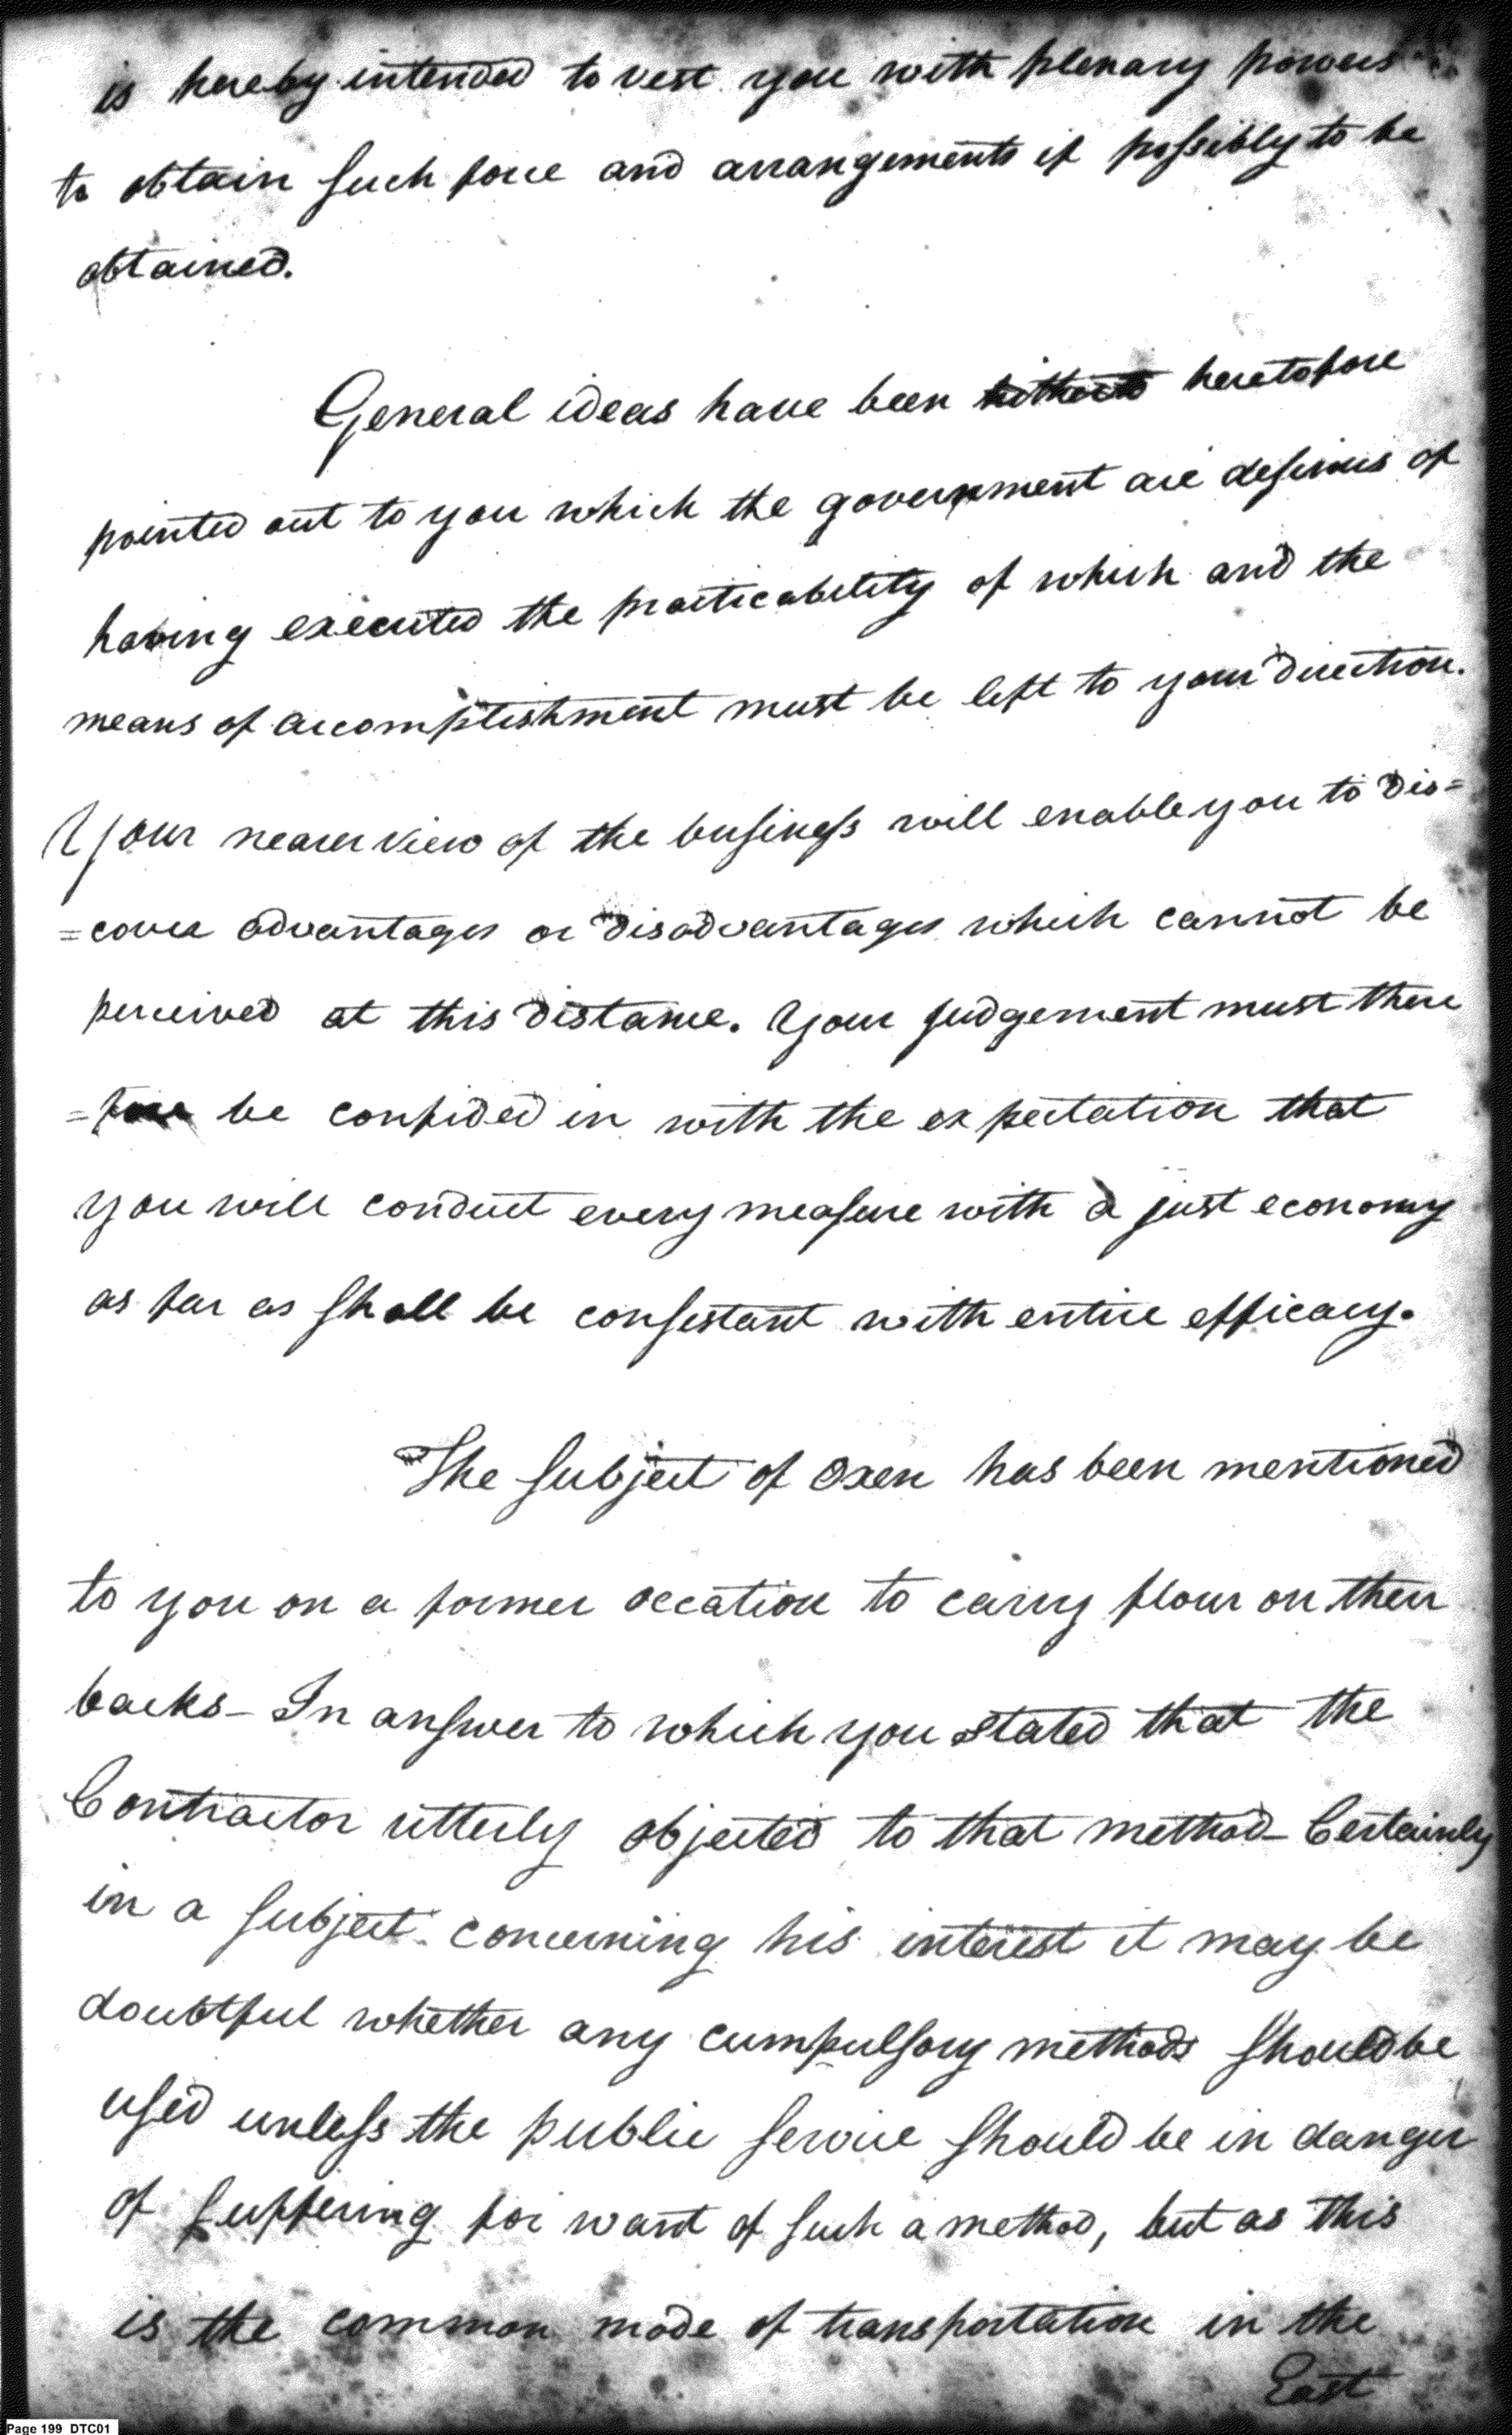 is hereby intended to vest you with plenary powers
to obtain such force and arrangements if possibly to be
obtained.
General ideas have been hitherto heretofore
pointed out to you which the government are desirous of
having executed the practicability of which and the
means of accomplishment must be left to your direction.
Your nearer view of the business will enable you to dis=
=cover advantages or disadvantages which cannot be
perceived at this distance. Your judgement must there
=fore be confided in with the expectation that
you will conduct every measure with a just economy
as far as shall be consistant with entire efficacy.
The subject of oxen has been mentioned
to you on a former occation to carry flour on their
backs - In answer to which you stated that the
Contractor utterly objected to that method - Certainly
in a subject concerning his interest it may be
doubtful whether any cumpulsory methods should be
used unless the public service should be in danger
of suffering for want of such a method, but as this
is the common mode of transportation in the
East
Page 199 DTC01